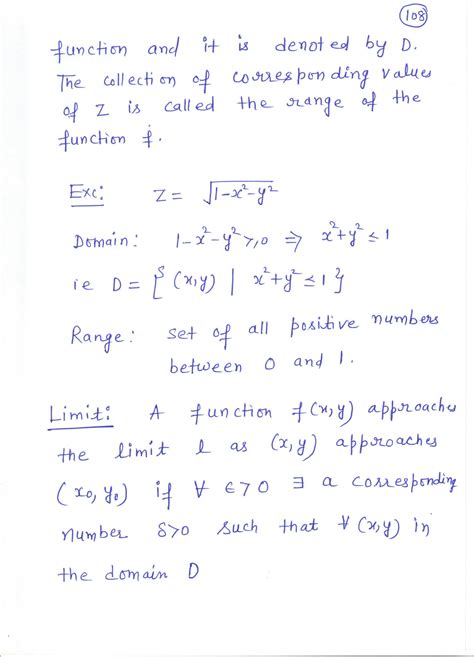 108
function and it is denoted by D.
The collection of corresponding values
of Z is called the range of the
function f.
Exc: Z = √1-x²-y²
Domain: 1-x²-y² ≥ 0 ⇒ x²+y² ≤ 1
ie D = { (x,y) | x²+y² ≤ 1 }
Range: set of all positive numbers
between 0 and 1.
Limit: A function f(x,y) approaches
the limit l as (x,y) approaches
(x₀, y₀) if ∀ ϵ>0 ∃ a corresponding
number δ>0 such that ∀ (x,y) in
the domain D